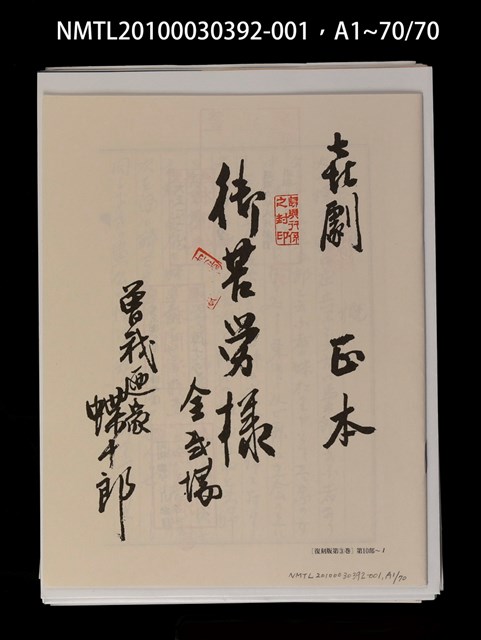 NMTL20100030392-001，A1~70/70
喜劇 正本
御苦労様
全弐場
曽我廼家
蝶十郎
之封印
〔復刻版第③巻〕第10部～1
NMTL20100030392-001, A1/70